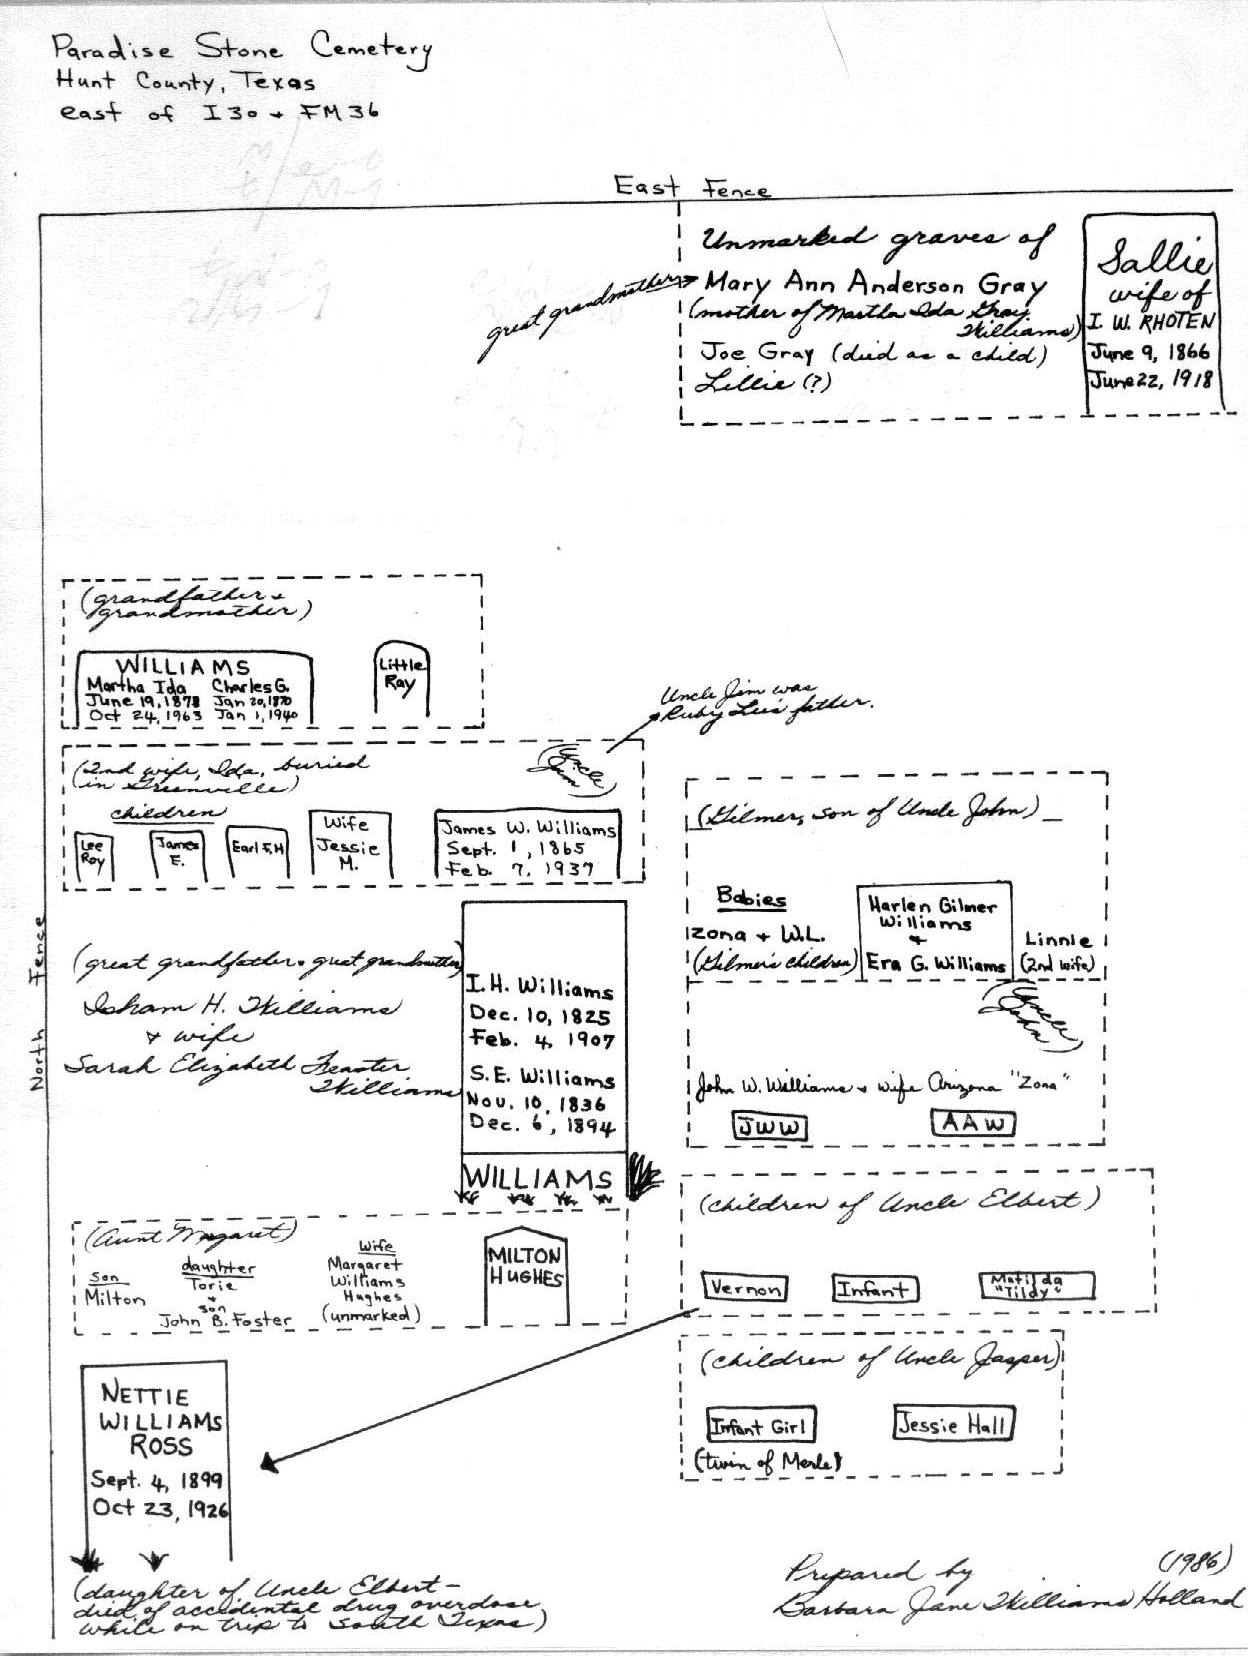 Paradise Stone Cemetery
Hunt County, Texas
east of I30 + FM36
East Fence
Unmarked graves of
great grandmother
Mary Ann Anderson Gray
(mother of Martha Ida Gray
Williams)
Joe Gray (died as a child)
Lillie (?)
Sallie
wife of
I. W. RHOTEN
June 9, 1866
June 22, 1918
(grandfather +
grandmother)
WILLIAMS
Martha Ida Charles G.
June 19, 1878 Jan 20, 1870
Oct 24, 1963 Jan 1, 1940
Little
Ray
Uncle Jim was
Ruby Lee's father.
(2nd wife, Ida, buried
in Greenville)
(Uncle
Jim)
children
Lee
Roy
James
E.
Earl F. H
Wife
Jessie
M.
James W. Williams
Sept. 1, 1865
Feb. 7, 1937
(Gilmer, son of Uncle John)
Babies
Izona + W.L.
(Gilmer's children)
Harlen Gilmer
Williams
+
Era G. Williams
Linnie
(2nd wife)
North Fence
(great grandfather + great grandmother)
Isham H. Williams
+ wife
Sarah Elizabeth Feaster
Williams
I.H. Williams
Dec. 10, 1825
Feb. 4, 1907
S.E. Williams
Nov. 10, 1836
Dec. 6, 1894
WILLIAMS
(Uncle
John)
John W. Williams + wife Arizona "Zona"
JWW
AAW
(children of Uncle Elbert)
Vernon
Infant
Matilda
"Tildy"
(Aunt Margaret)
son
Milton
daughter
Torie
+
son
John B. Foster
Wife
Margaret
Williams
Hughes
(unmarked)
MILTON
HUGHES
(children of Uncle Jasper)
Infant Girl
(twin of Merle)
Jessie Hall
NETTIE
WILLIAMS
ROSS
Sept. 4, 1899
Oct 23, 1926
(daughter of Uncle Elbert -
died of accidental drug overdose
while on trip to South Texas)
Prepared by (1986)
Barbara Jane Williams Holland